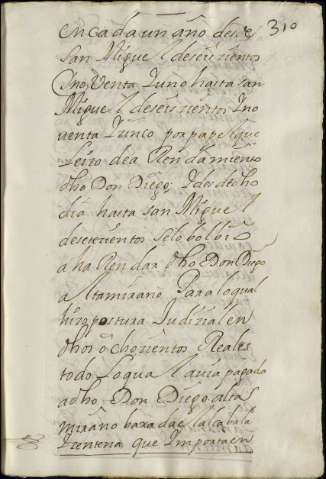 en Cada un año desde 310
san Migue l de seiscientos
Y noVenta Y uno hasta san
Migue l de seiscientos Y no
venta Y cinco por papel que
hizo de a Rendamiento
dho Don Diego Y desde dho
dia hasta san Migue l
de seiscientos se lo bolbio
a ha Rendar dho Don Diego
a Altamirano Para lo qual
hizo postura Judicial en
dhos ochocientos Reales
todo lo qual avia pagado
a dho Don Diego alta
mirano baxa de la cabala
Y centena que Importa en